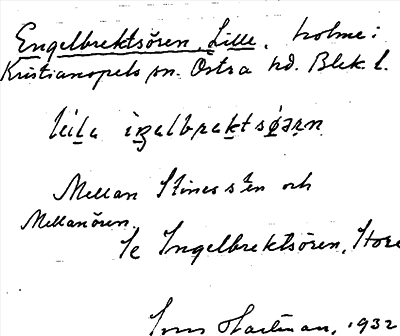 Engelbrektsören, Lille, holme i
Kristianopels sn. Östra hd. Blek. l.
Mellan Stines sten och
Mellanören.
Se Ingelbrektsören, Stora
Hartman, 1932